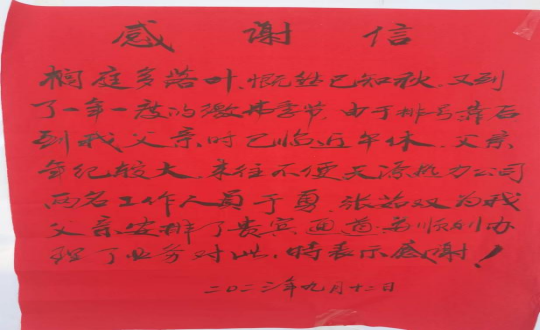 感谢信
桐庭多落叶，慨然已知秋，又到
了一年一度的缴费季节，由于排号靠后
到我父亲时已临近午休，父亲
年纪较大，来往不便天源热力公司
两名工作人员于勇，张茹双为我
父亲安排了贵宾通道，并顺利办
理了业务对此，特表示感谢！
二〇二三年九月十二日